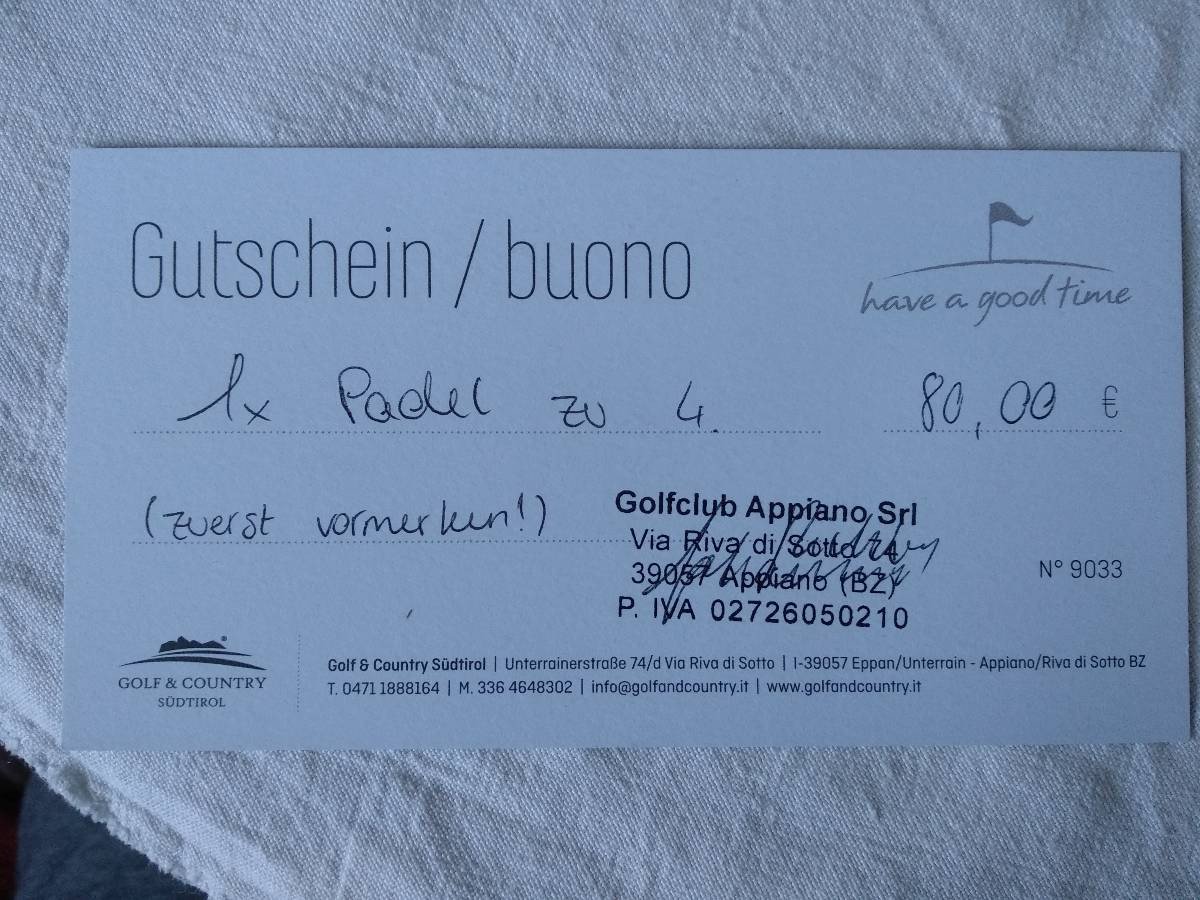 Gutschein / buono
have a good time
1x Padel zu 4.
80,00 €
(zuerst vormerken!)
Golfclub Appiano Srl
Via Riva di Sotto 74
39057 Appiano (BZ)
P. IVA 02726050210
N° 9033
GOLF & COUNTRY
SÜDTIROL
Golf & Country Südtirol | Unterrainerstraße 74/d Via Riva di Sotto | I-39057 Eppan/Unterrain - Appiano/Riva di Sotto BZ
T. 0471 1888164 | M. 336 4648302 | info@golfandcountry.it | www.golfandcountry.it